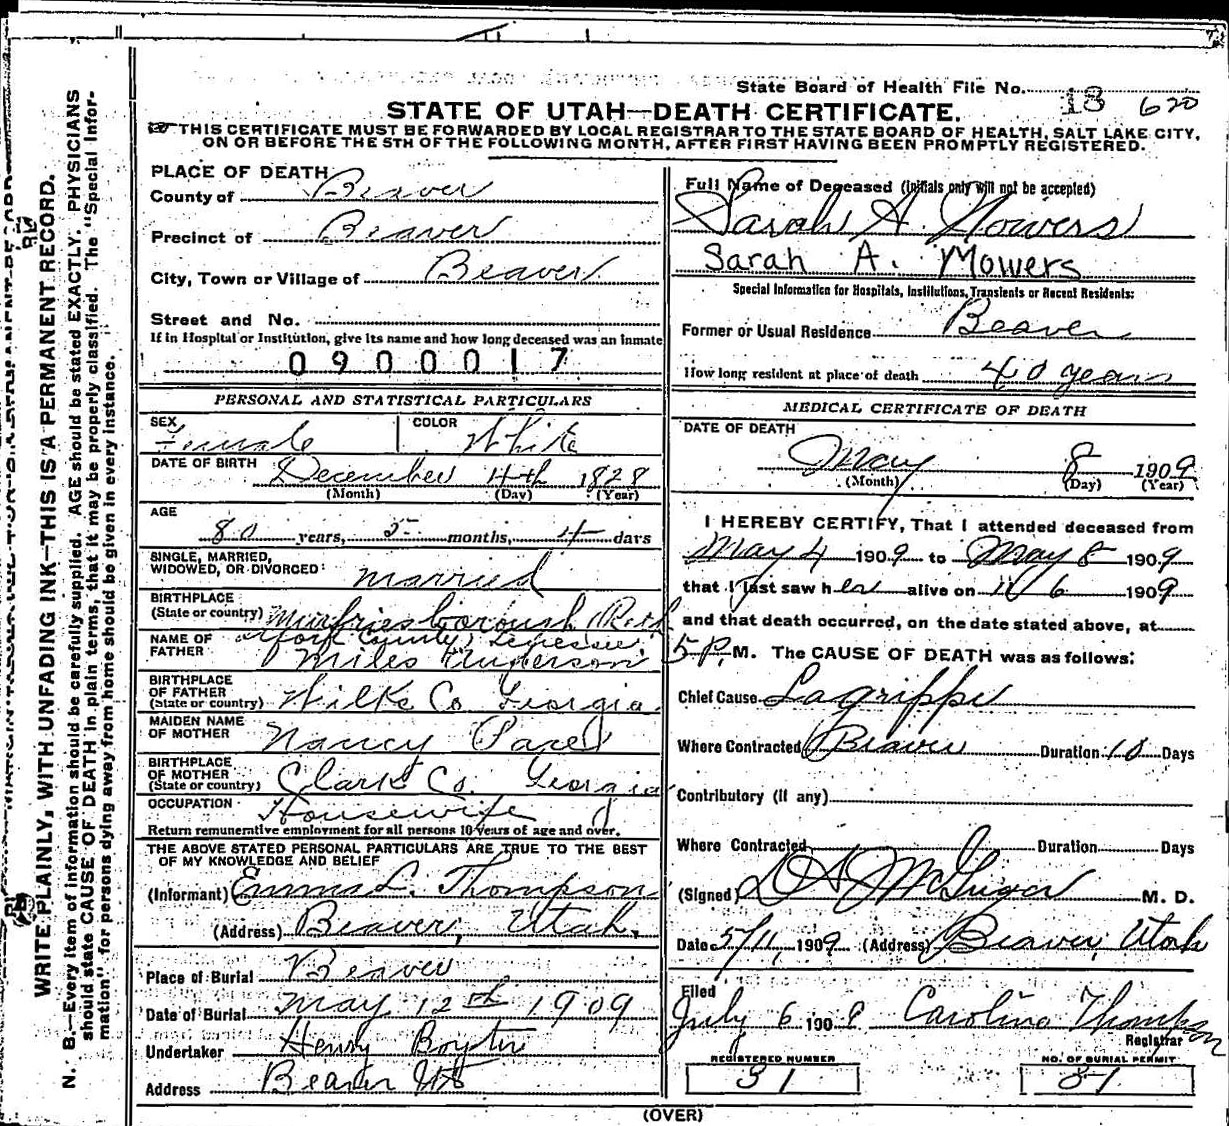 State Board of Health File No. 18 620
STATE OF UTAH—DEATH CERTIFICATE.
THIS CERTIFICATE MUST BE FORWARDED BY LOCAL REGISTRAR TO THE STATE BOARD OF HEALTH, SALT LAKE CITY,
ON OR BEFORE THE 5TH OF THE FOLLOWING MONTH, AFTER FIRST HAVING BEEN PROMPTLY REGISTERED.
WRITE PLAINLY, WITH UNFADING INK—THIS IS A PERMANENT RECORD.
N. B.—Every item of information should be carefully supplied. AGE should be stated EXACTLY. PHYSICIANS
should state CAUSE OF DEATH in plain terms, that it may be properly classified. The "Special Infor-
mation" for persons dying away from home should be given in every instance.
PLACE OF DEATH
County of Beaver
Precinct of Beaver
City, Town or Village of Beaver
Street and No.
If in Hospital or Institution, give its name and how long deceased was an inmate
0900017
PERSONAL AND STATISTICAL PARTICULARS
SEX Female COLOR White
DATE OF BIRTH December 4th 1828
(Month) (Day) (Year)
AGE
80 years, 5 months, 4 days
SINGLE, MARRIED,
WIDOWED, OR DIVORCED: married
BIRTHPLACE
(State or country) Murfriesborough (Ruth
erford County) Tenessee
NAME OF
FATHER Miles Anderson
BIRTHPLACE
OF FATHER
(State or country) Wilks Co Georgia
MAIDEN NAME
OF MOTHER Nancy Pace
BIRTHPLACE
OF MOTHER
(State or country) Clark Co. Georgia
OCCUPATION Housewife
Return remunerative employment for all persons 10 years of age and over.
THE ABOVE STATED PERSONAL PARTICULARS ARE TRUE TO THE BEST
OF MY KNOWLEDGE AND BELIEF
(Informant) Emma L. Thompson
(Address) Beaver, Utah.
Place of Burial Beaver
Date of Burial May 12th 1909
Undertaker Henry Boyter
Address Beaver
Full Name of Deceased (Initials only will not be accepted)
Sarah A. Nowers
Sarah A. Mowers
Special Information for Hospitals, Institutions, Transients or Recent Residents:
Former or Usual Residence Beaver
How long resident at place of death 40 years
MEDICAL CERTIFICATE OF DEATH
DATE OF DEATH
May 8 1909
(Month) (Day) (Year)
I HEREBY CERTIFY, That I attended deceased from
May 4 1909 to May 8 1909
that I last saw her alive on 6 1909
and that death occurred, on the date stated above, at
5 P. M. The CAUSE OF DEATH was as follows:
Chief Cause Lagrippe
Where Contracted Beaver Duration 10 Days
Contributory (if any)
Where Contracted Duration Days
(Signed) M. D.
Date 5/11, 1909 (Address) Beaver, Utah
Filed
July 6 1909 Caroline Thompson
Registrar
REGISTERED NUMBER NO. OF BURIAL PERMIT
31 31
(OVER)